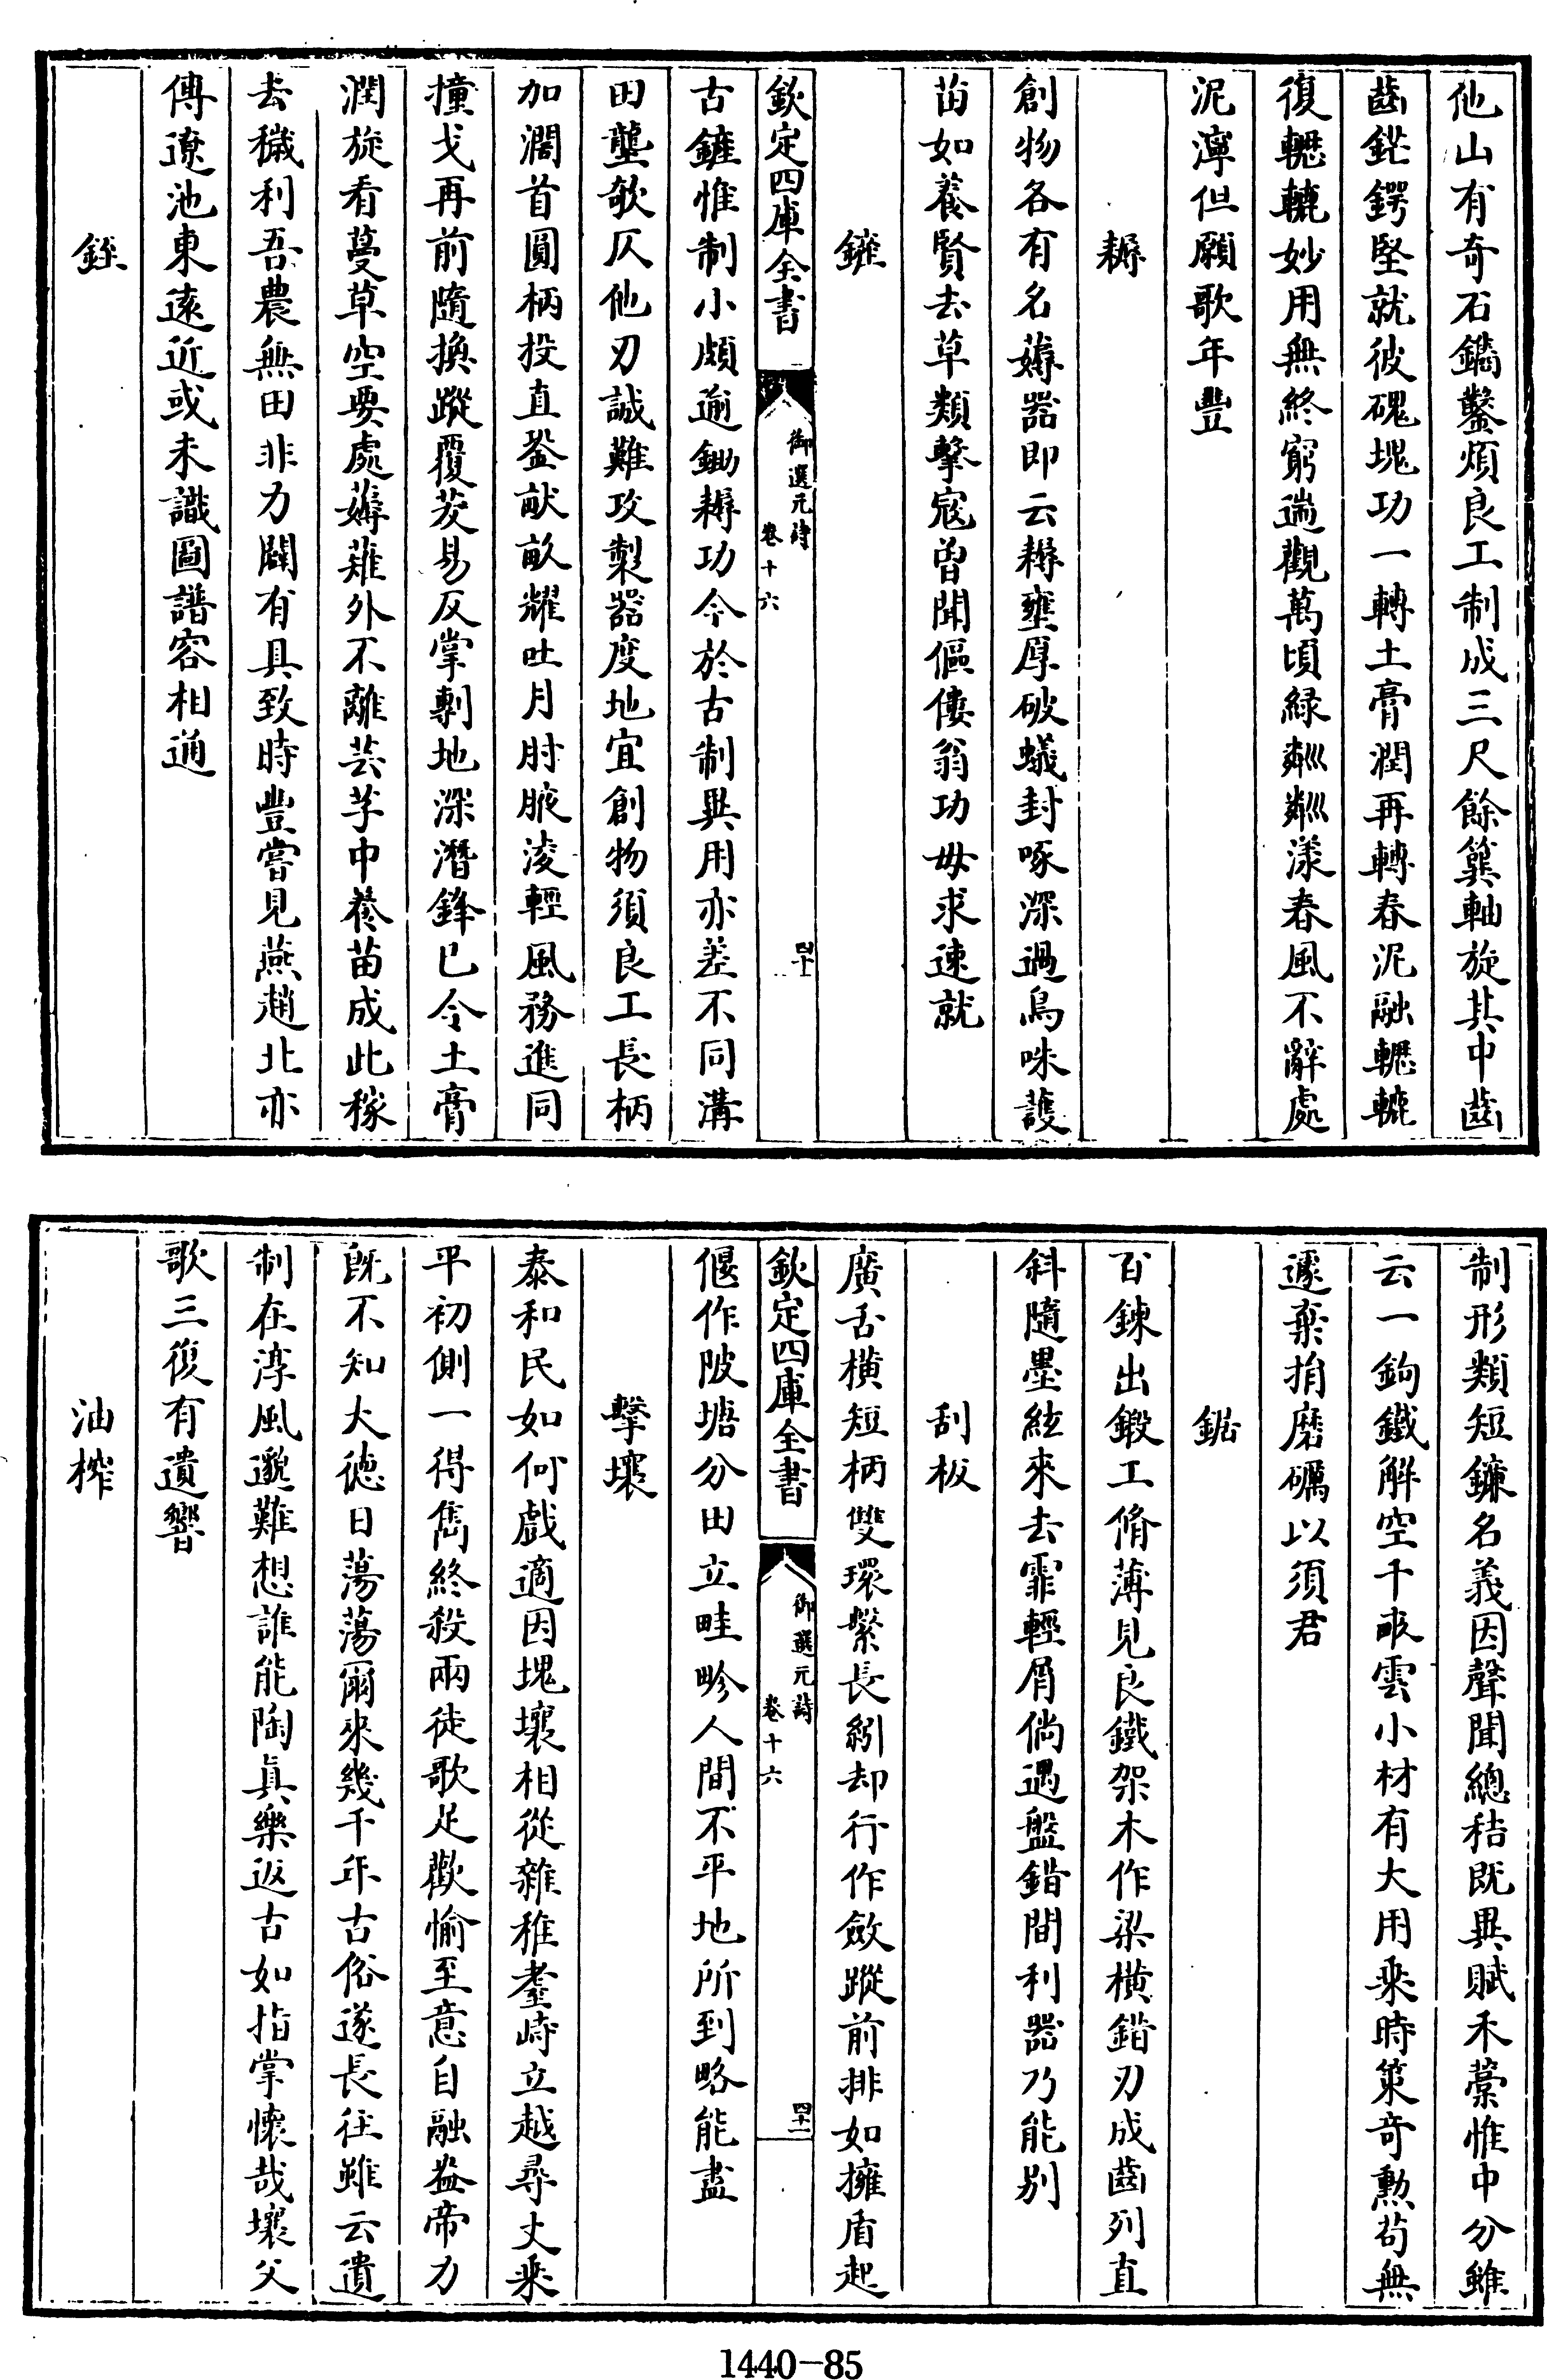 他山有奇石鐫鑿煩良工制成三尺餘簨軸旋其中齒
齒鋩鍔堅就彼磈塊功一轉土膏潤再轉春泥融轣轆
復轣轆妙用無終窮遄觀萬頃緑粼粼漾春風不辭處
泥濘但願歌年豐
耨
創物各有名薅器即云耨壅厚破蟻封啄深過鳥咮護
苗如養賢去草類擊寇曾聞傴僂翁功毋求速就
䥥
欽定四庫全書
御選元詩
卷十六
四十一
古䥥惟制小頗逾鋤耨功今於古制異用亦差不同溝
田壟欹仄他刃誠難攻製器度地宜創物須良工長柄
加濶首圓柄投直銎畎畝耀吐月肘腋淩輕風務進同
撞戈再前隨換蹤覆茇易反掌剸地深潛鋒已令土膏
潤旋看蔓草空要處薅薙外不離芸芓中養苗成此稼
去穢利吾農無田非力闢有具致時豐嘗見燕趙北亦
傳遼池東遠近或未識圖譜容相通
銍
制形類短鐮名義因聲聞總秸既異賦禾藁惟中分雖
云一鉤鐵解空千畝雲小材有大用乘時策奇勲苟無
遽棄捐磨礪以須君
鋸
百鍊出鍛工脩薄見良鐵架木作梁横錯刃成齒列直
斜隨墨絃來去霏輕屑倘遇盤錯間利器乃能别
刮板
廣舌横短柄雙環縈長紖却行作斂蹤前排如擁盾起
欽定四庫全書
御選元詩
卷十六
四十二
偃作陂塘分田立畦畛人間不平地所到略能盡
擊壤
泰和民如何戲適因塊壤相從雜稚耋峙立越尋丈乘
平初側一得雋終殺兩徒歌足歡愉至意自融益帝力
既不知大德日蕩蕩爾來幾千年古俗遂長往雖云遺
制在淳風邈難想誰能陶真樂返古如指掌懷哉壤父
歌三復有遺響
油榨
1440—85